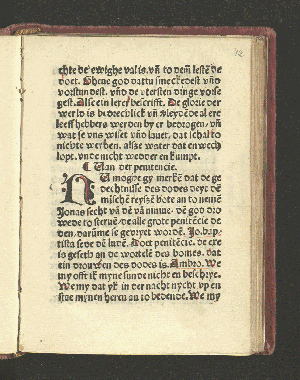 chte de ewighe val is. vñ to dem̃ lestẽ de
doet. O hene god dattu smeckedest vñd
vorstundest. vñd de vtersten dinge vorse
gest. Alse ein lerer bescrifft. De glorie der
werld is bedrechlick vñ vleyde al ere
leeffhebbers werden by er bedrogen. vñ
wat se vns wiset vnd lauet. dat schal to
nichte werden. alsze water dat en wech
lopt. vnde nicht wedder en kumpt.
¶ Uan der penitencie.
NU moghe gy merkẽ dat de ge
dechtnisse des dodes deyt dẽ
mischẽ reysze bote an to nenẽ
Jonas secht vã dẽ vã niniue. dẽ god dro
wede to steruẽ. de alle grote penitẽcie de
den. darũme se gevryet wordẽ. Jo. bap-
tista sede dẽ ludẽ. Doet penitẽcie. de exe
is gesetb an de wortelẽ des bomes. dat
ein drouwen des dodes is. Ambro. We
my offt ik myne sunde nicht en beschrye.
We my dat yk in der nacht nycht vp en
stoe mynen heren an to bedende. We my